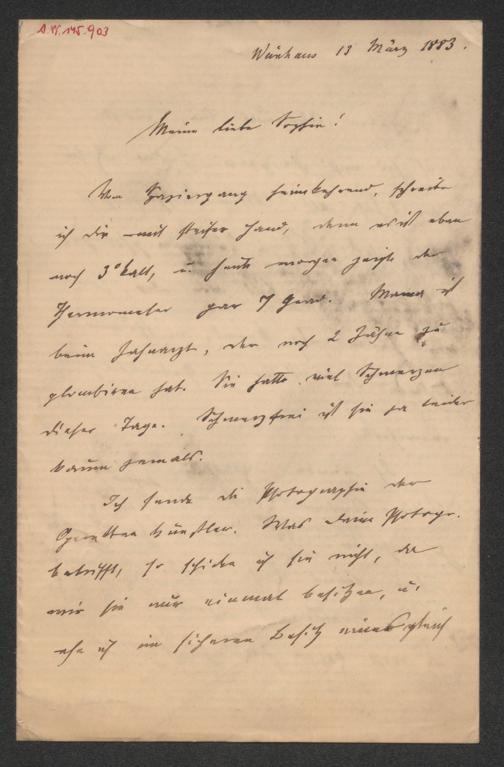 A. W. 145.903
Weinhaus 13 März 1883.
Meine liebe Sophie!
Vom Spaziergang heimkehrend, schreibe
ich dir mit steifer Hand, denn es ist eben
noch 3° kalt, u. heute morgen zeigte der
Thermometer gar 7 Grad. Mama ist
beim Zahnarzt, der noch 2 Zähne zu
plombiren hat. Sie hatte viel Schmerzen
dieser Tage. Schmerzfrei ist sie ja leider
kaum jemals.
Ich sende die Photographie der
Künstler. Was deine Photogr.
betrifft, so schicke ich sie nicht, da
wir sie nur einmal besitzen, u.
ehe ich im sicheren Besitz eines gleich